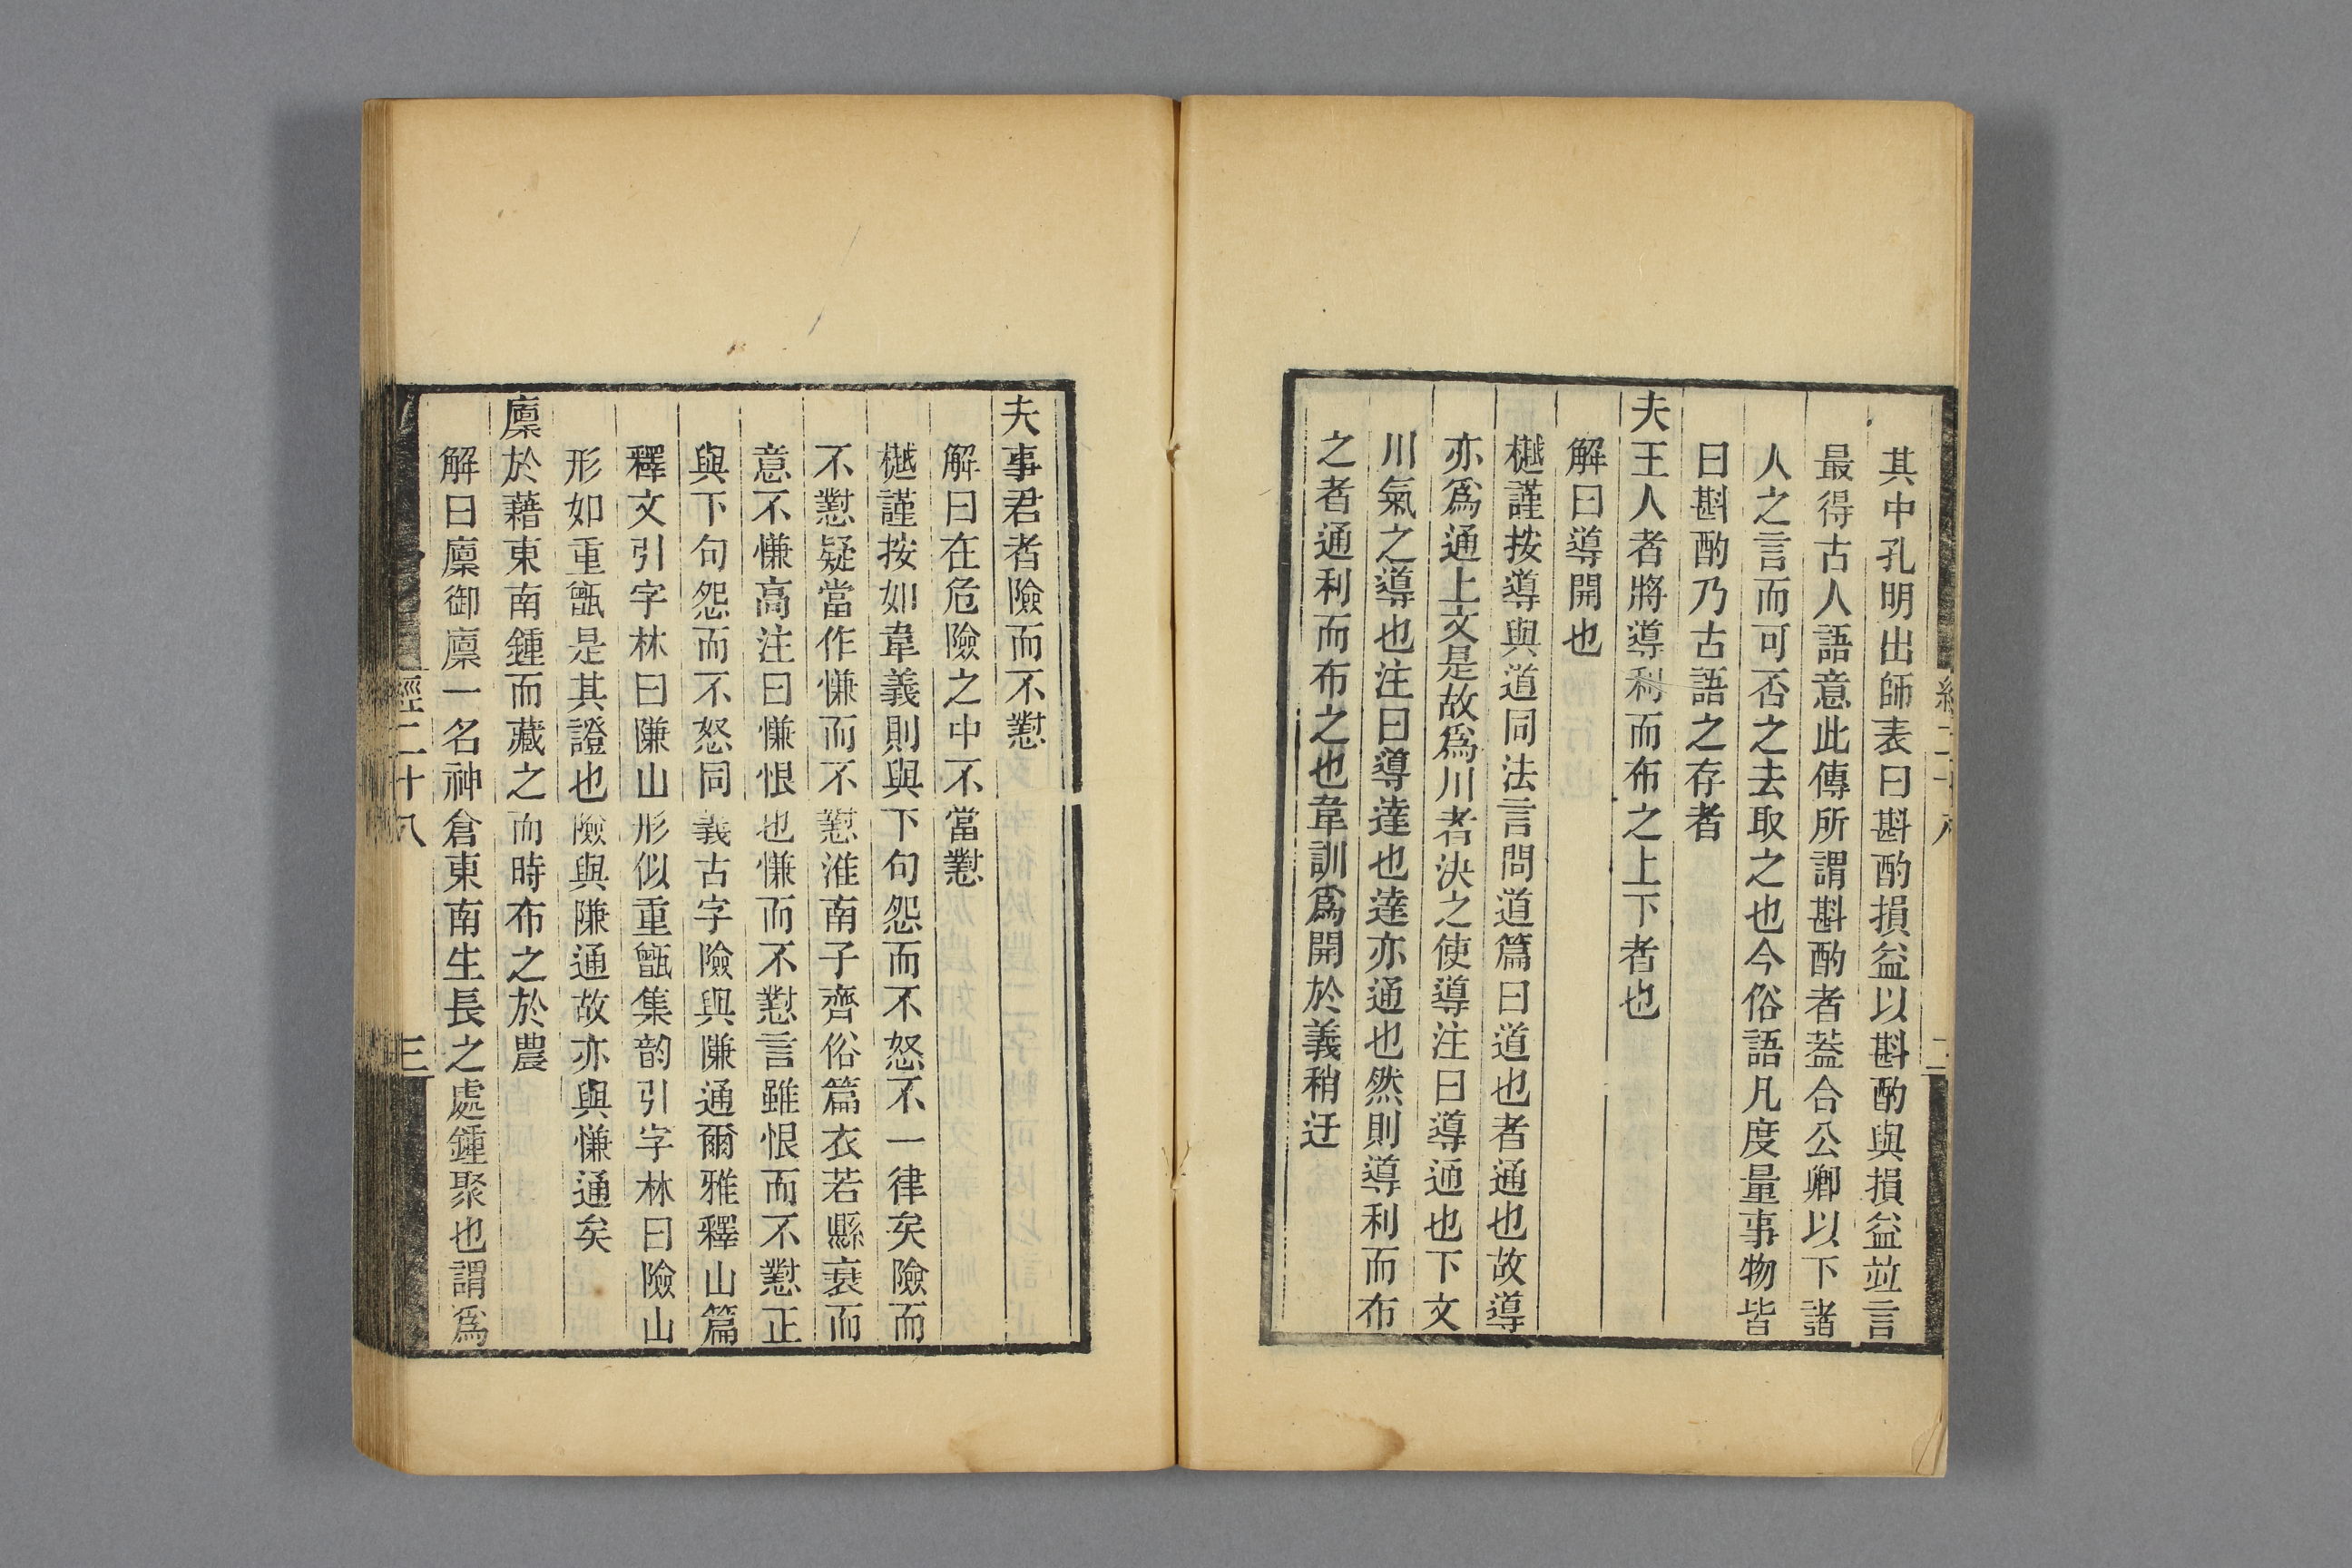 其中孔明出師表曰斟酌損益以斟酌與損益竝言
最得古人語意此傳所謂斟酌者葢合公卿以下諸
人之言而可否之去取之也今俗語凡度量事物皆
曰斟酌乃古語之存者
夫王人者將導利而布之上下者也
解曰導開也
樾謹按導與道同法言問道篇曰道也者通也故導
亦爲通上文是故爲川者決之使導注曰導通也下文
川氣之導也注曰導達也達亦通也然則導利而布
之者通利而布之也韋訓爲開於義稍迂
夫事君者險而不懟
解曰在危險之中不當懟
樾謹按如韋義則與下句怨而不怒不一律矣險而
不懟疑當作慊而不懟淮南子齊俗篇衣若縣衰而
意不慊高注曰慊恨也慊而不懟言雖恨而不懟正
與下句怨而不怒同義古字險與隒通爾雅釋山篇
釋文引字林曰隒山形似重甑集韵引字林曰險山
形如重甑是其證也險與隒通故亦與慊通矣
廩於藉東南鍾而藏之而時布之於農
解曰廩御廩一名神倉東南生長之處鍾聚也謂爲
經二十八
三